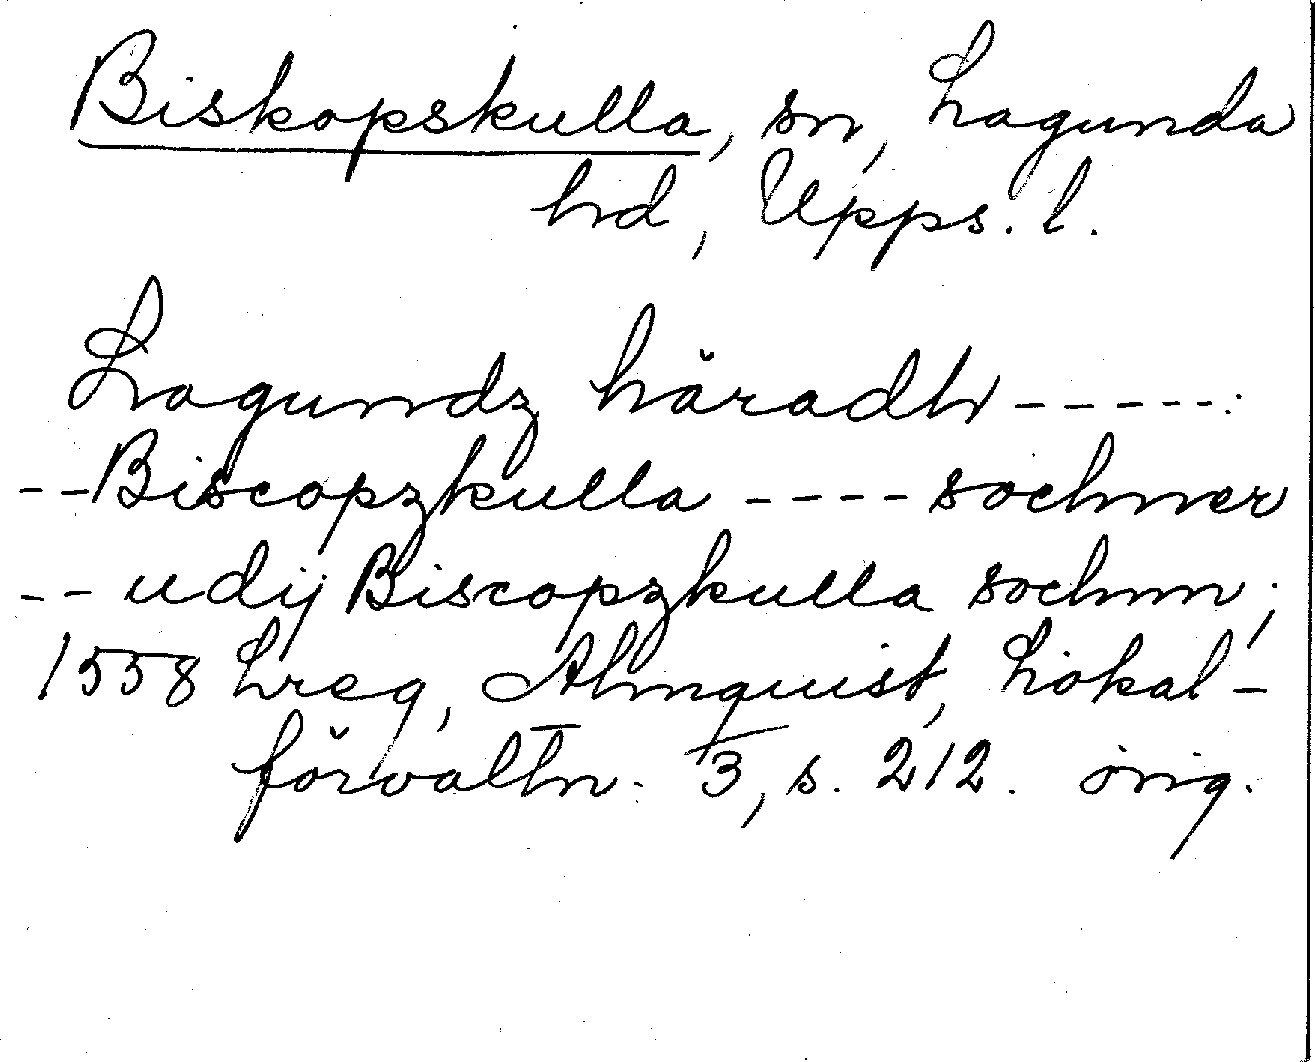 Biskopskulla, sn, Lagunda
hd, Upps. l.
Lagundz häradh -----.
--Biscopzkulla ---- sochner
-- udij Biscopzkulla sochnn;
1558 Lreg, Almquist, Lokal-
förvaltn. 3, s. 212. orig.